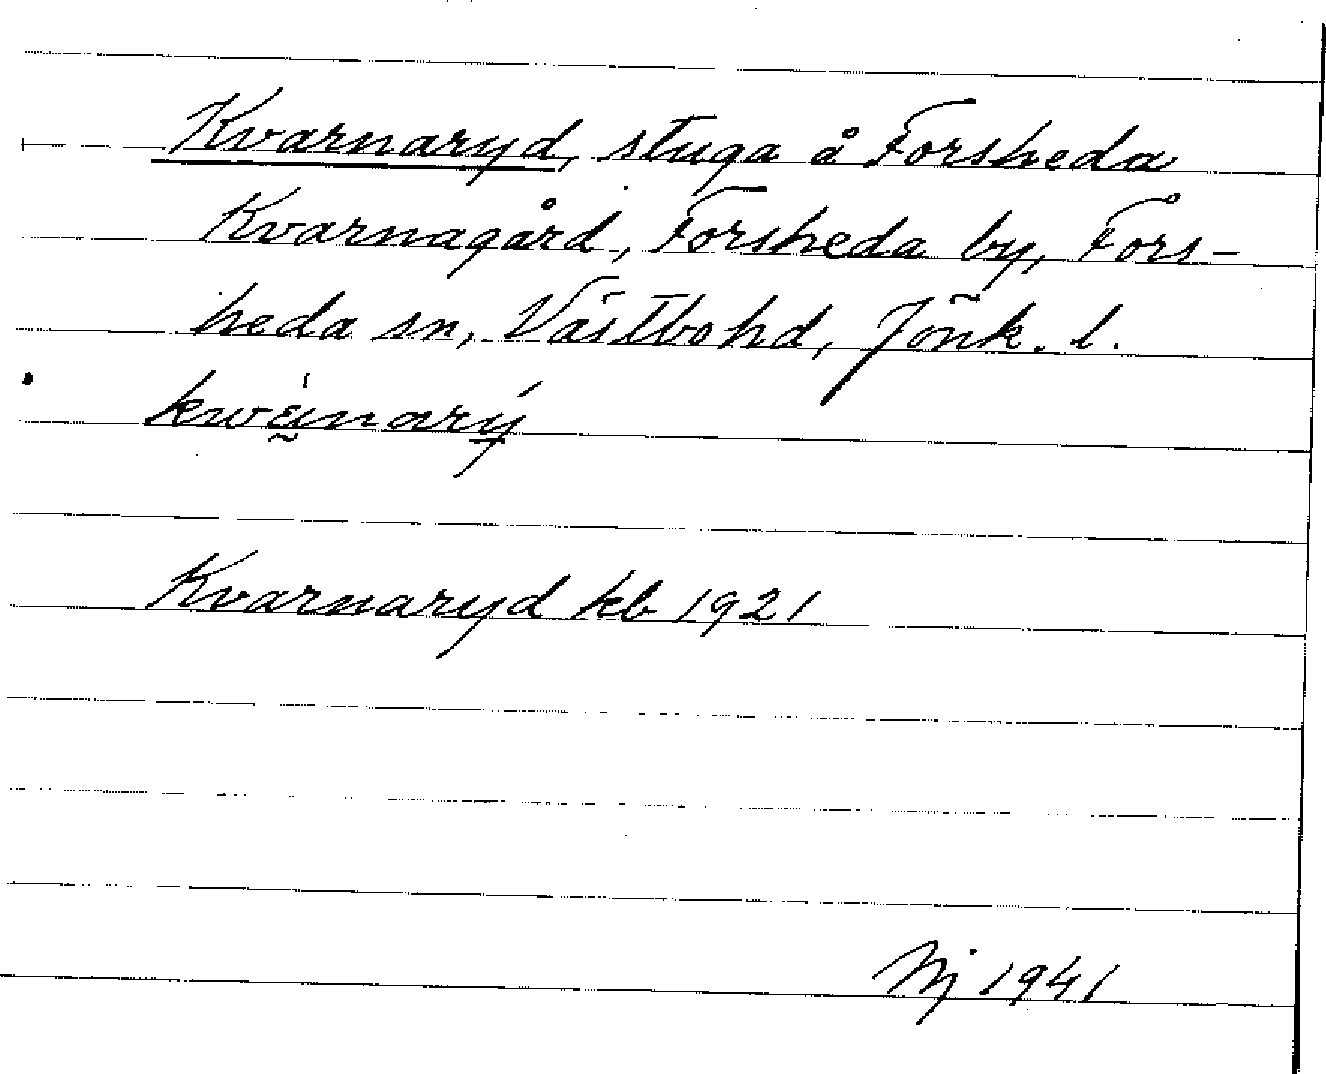 Kvarnaryd, stuga å Forsheda
Kvarnagård, Forsheda by, Fors-
heda sn, Västbo hd, Jönk. l.
Kvarnaryd kb 1921
1941